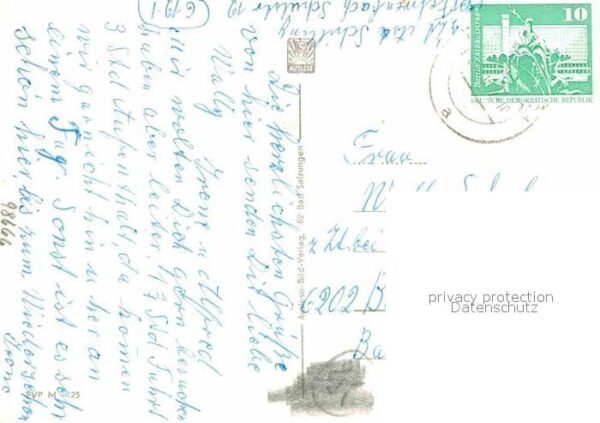 G 19 1
AUSLESE
10
DEUTSCHE DEMOKRATISCHE REPUBLIK
Die herzlichsten Grüße
von hier senden Dir liebe
Wally Irene u Alfred
Wir wollten Dich gern besuchen
haben aber leider 7 Std Fahrt
3 Std Aufenthalt da kommen
wir gar nicht hin u her an
einem Tag. Sonst ist es sehr
schön hier bis zum Wiedersehen
Irene
Auslese-Bild-Verlag, 62 Bad Salzungen
Frau
z Zt. bei
6202 B
Ba
privacy protection
Datenschutz
98666
PVP M 25